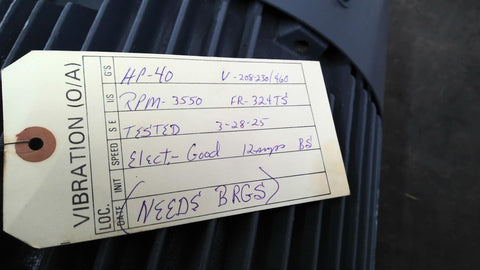 VIBRATION (O/A)
LOC. DATE INIT SPEED S E I I S G'S
HP-40 V-208-230/460
RPM-3550 FR-324TS
TESTED 3-28-25
Elect- Good 12amps BS
(NEEDS BRGS)